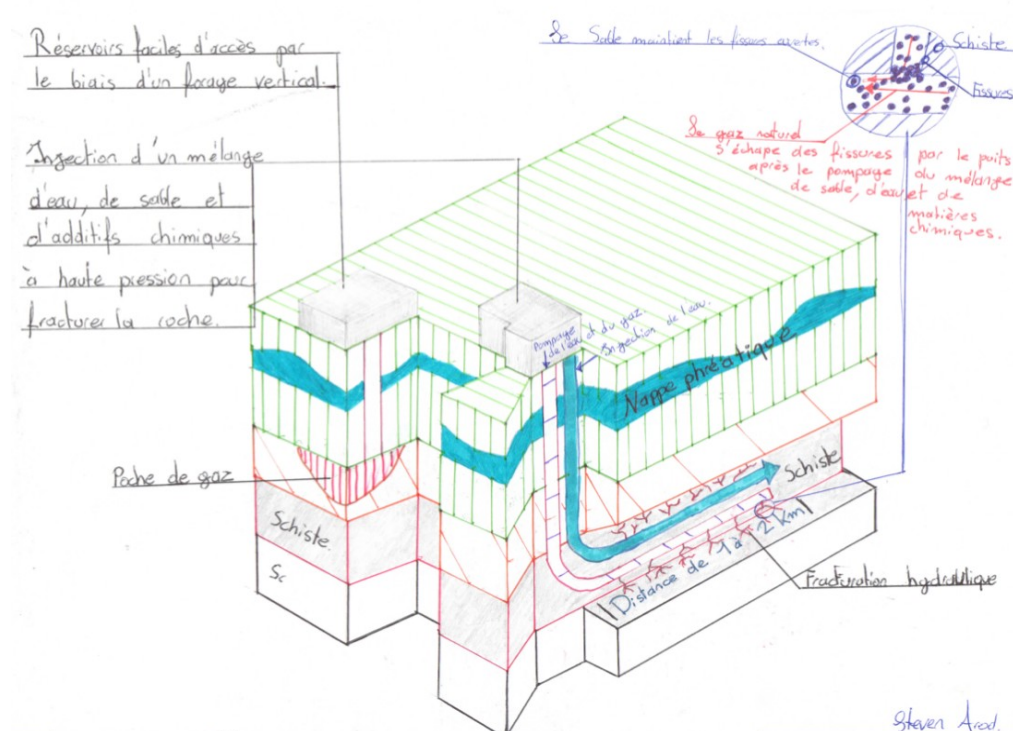 Réservoirs faciles d'accès par
le biais d'un forage vertical.
Injection d'un mélange
d'eau, de sable et
d'additifs chimiques
à haute pression pour
fracturer la roche.
Poche de gaz
Schiste.
Sc
Le Sable maintient les fissures ouvertes.
Schiste
Fissures
Le gaz naturel
s'échappe des fissures par le puits
après le pompage du mélange
de sable, d'eau et de
matières
chimiques.
Pompage
de l'eau et du gaz.
Injection de l'eau.
Nappe phréatique
Schiste
Distance de 1 à 2 km
Fracturation hydraulique
Steven Arod.